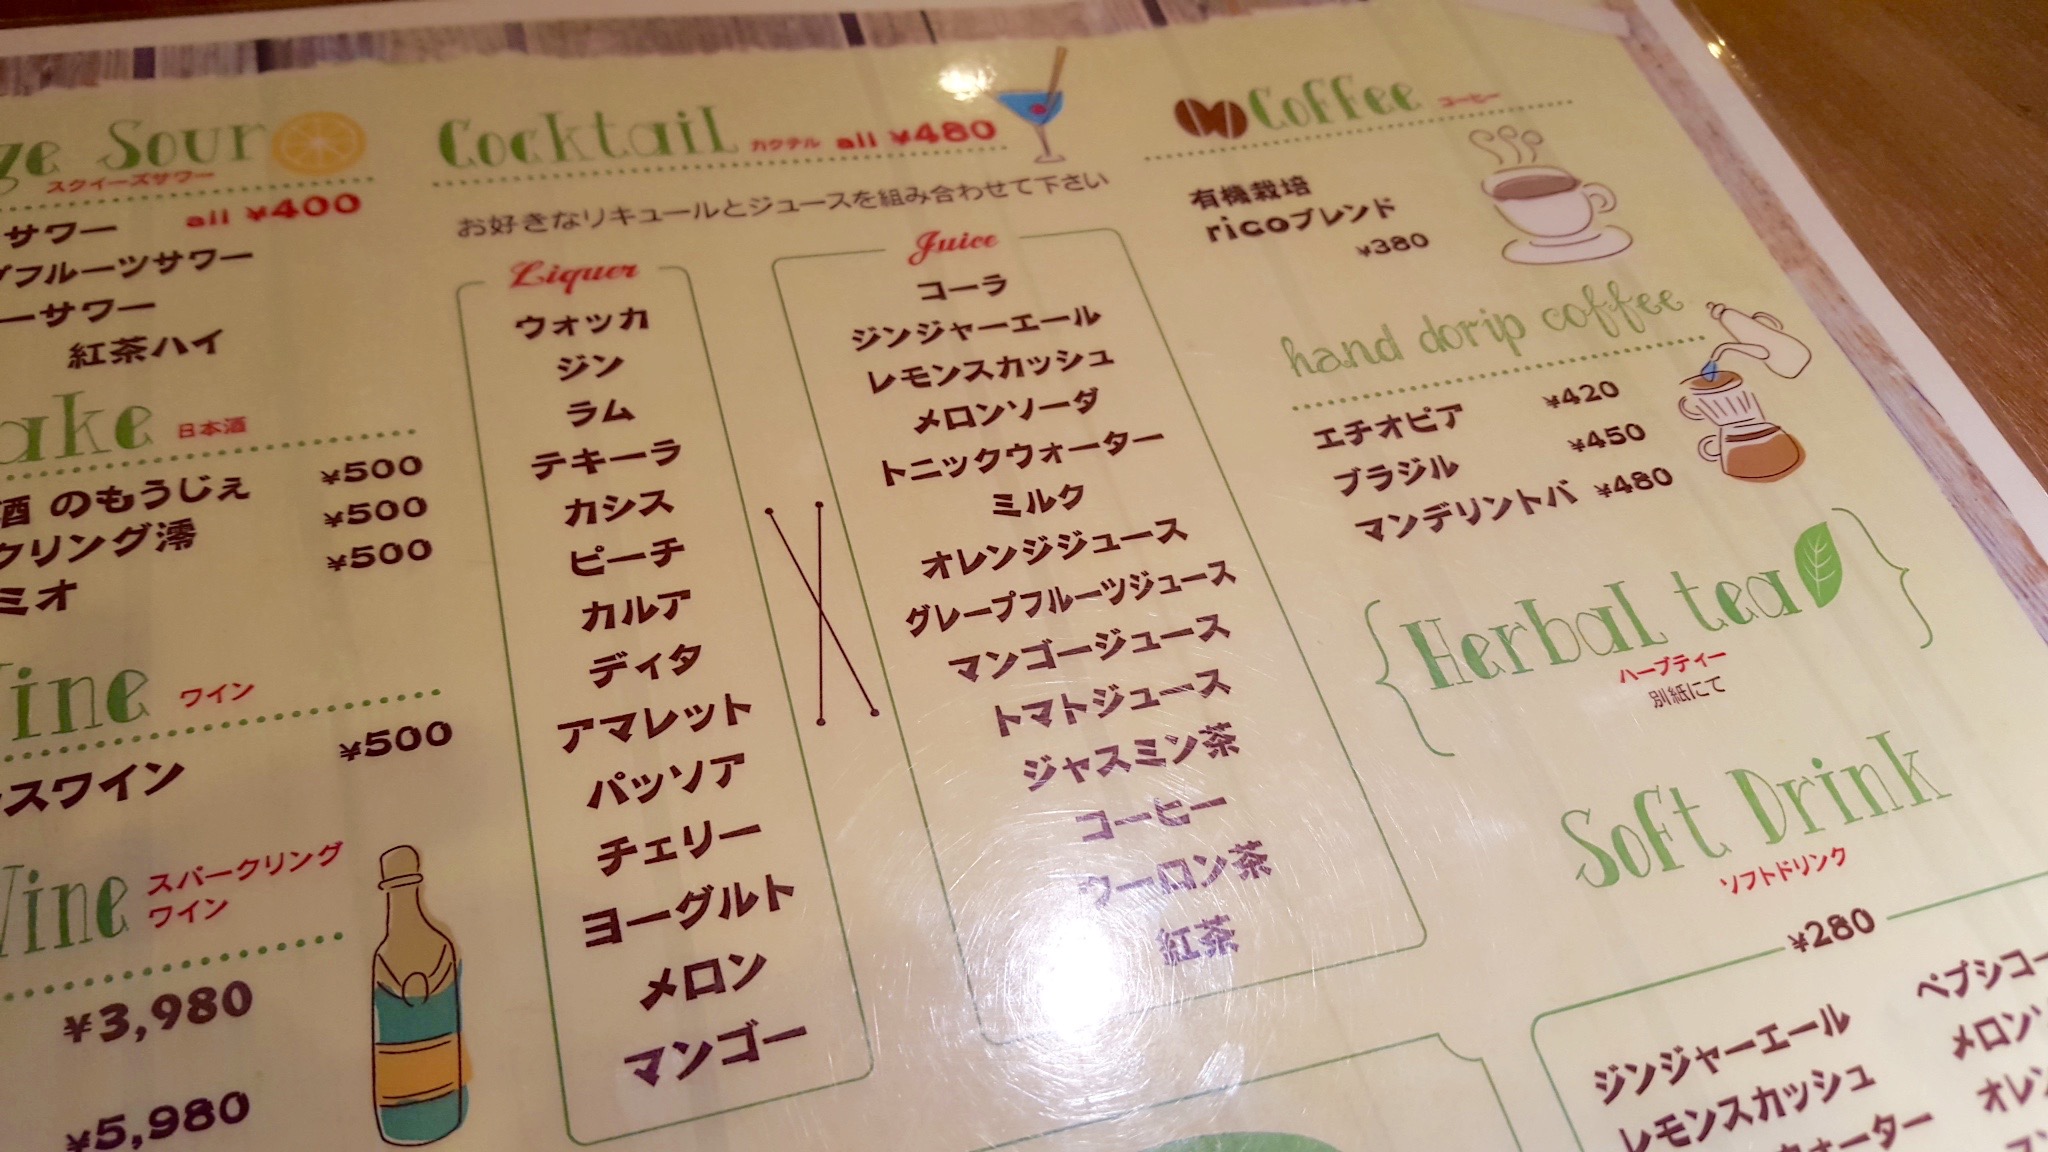 Sour
スクイーズサワー
サワー all ¥400
フルーツサワー
ーサワー
紅茶ハイ
ake 日本酒
酒 のもうじぇ ¥500
クリング澪 ¥500
ミオ ¥500
ine ワイン
スワイン ¥500
ine スパークリング
ワイン
¥3,980
¥5,980
Cocktail カクテル all ¥480
お好きなリキュールとジュースを組み合わせて下さい
Liquer
ウォッカ
ジン
ラム
テキーラ
カシス
ピーチ
カルア
ディタ
アマレット
パッソア
チェリー
ヨーグルト
メロン
マンゴー
Juice
コーラ
ジンジャーエール
レモンスカッシュ
メロンソーダ
トニックウォーター
ミルク
オレンジジュース
グレープフルーツジュース
マンゴージュース
トマトジュース
ジャスミン茶
コーヒー
ウーロン茶
紅茶
Coffee コーヒー
有機栽培
ricoブレンド
¥380
hand dorip coffee
エチオピア ¥420
ブラジル ¥450
マンデリントバ ¥480
Herbal tea
ハーブティー
別紙にて
Soft Drink
ソフトドリンク
¥280
ジンジャーエール
レモンスカッシュ
ウォーター
ペプシコー
メロン
オレン